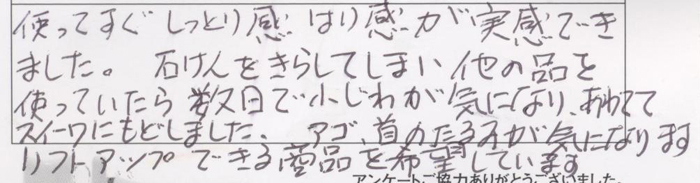 使ってすぐ しっとり感 はり感が実感でき
ました。 石けんをきらしてしまい 他の品を
使っていたら数日で小じわが気になり、あわてて
スイーツにもどしました、 アゴ、首のたるみが気になります
リフトアップできる商品を希望しています
アンケートご協力ありがとうございました。